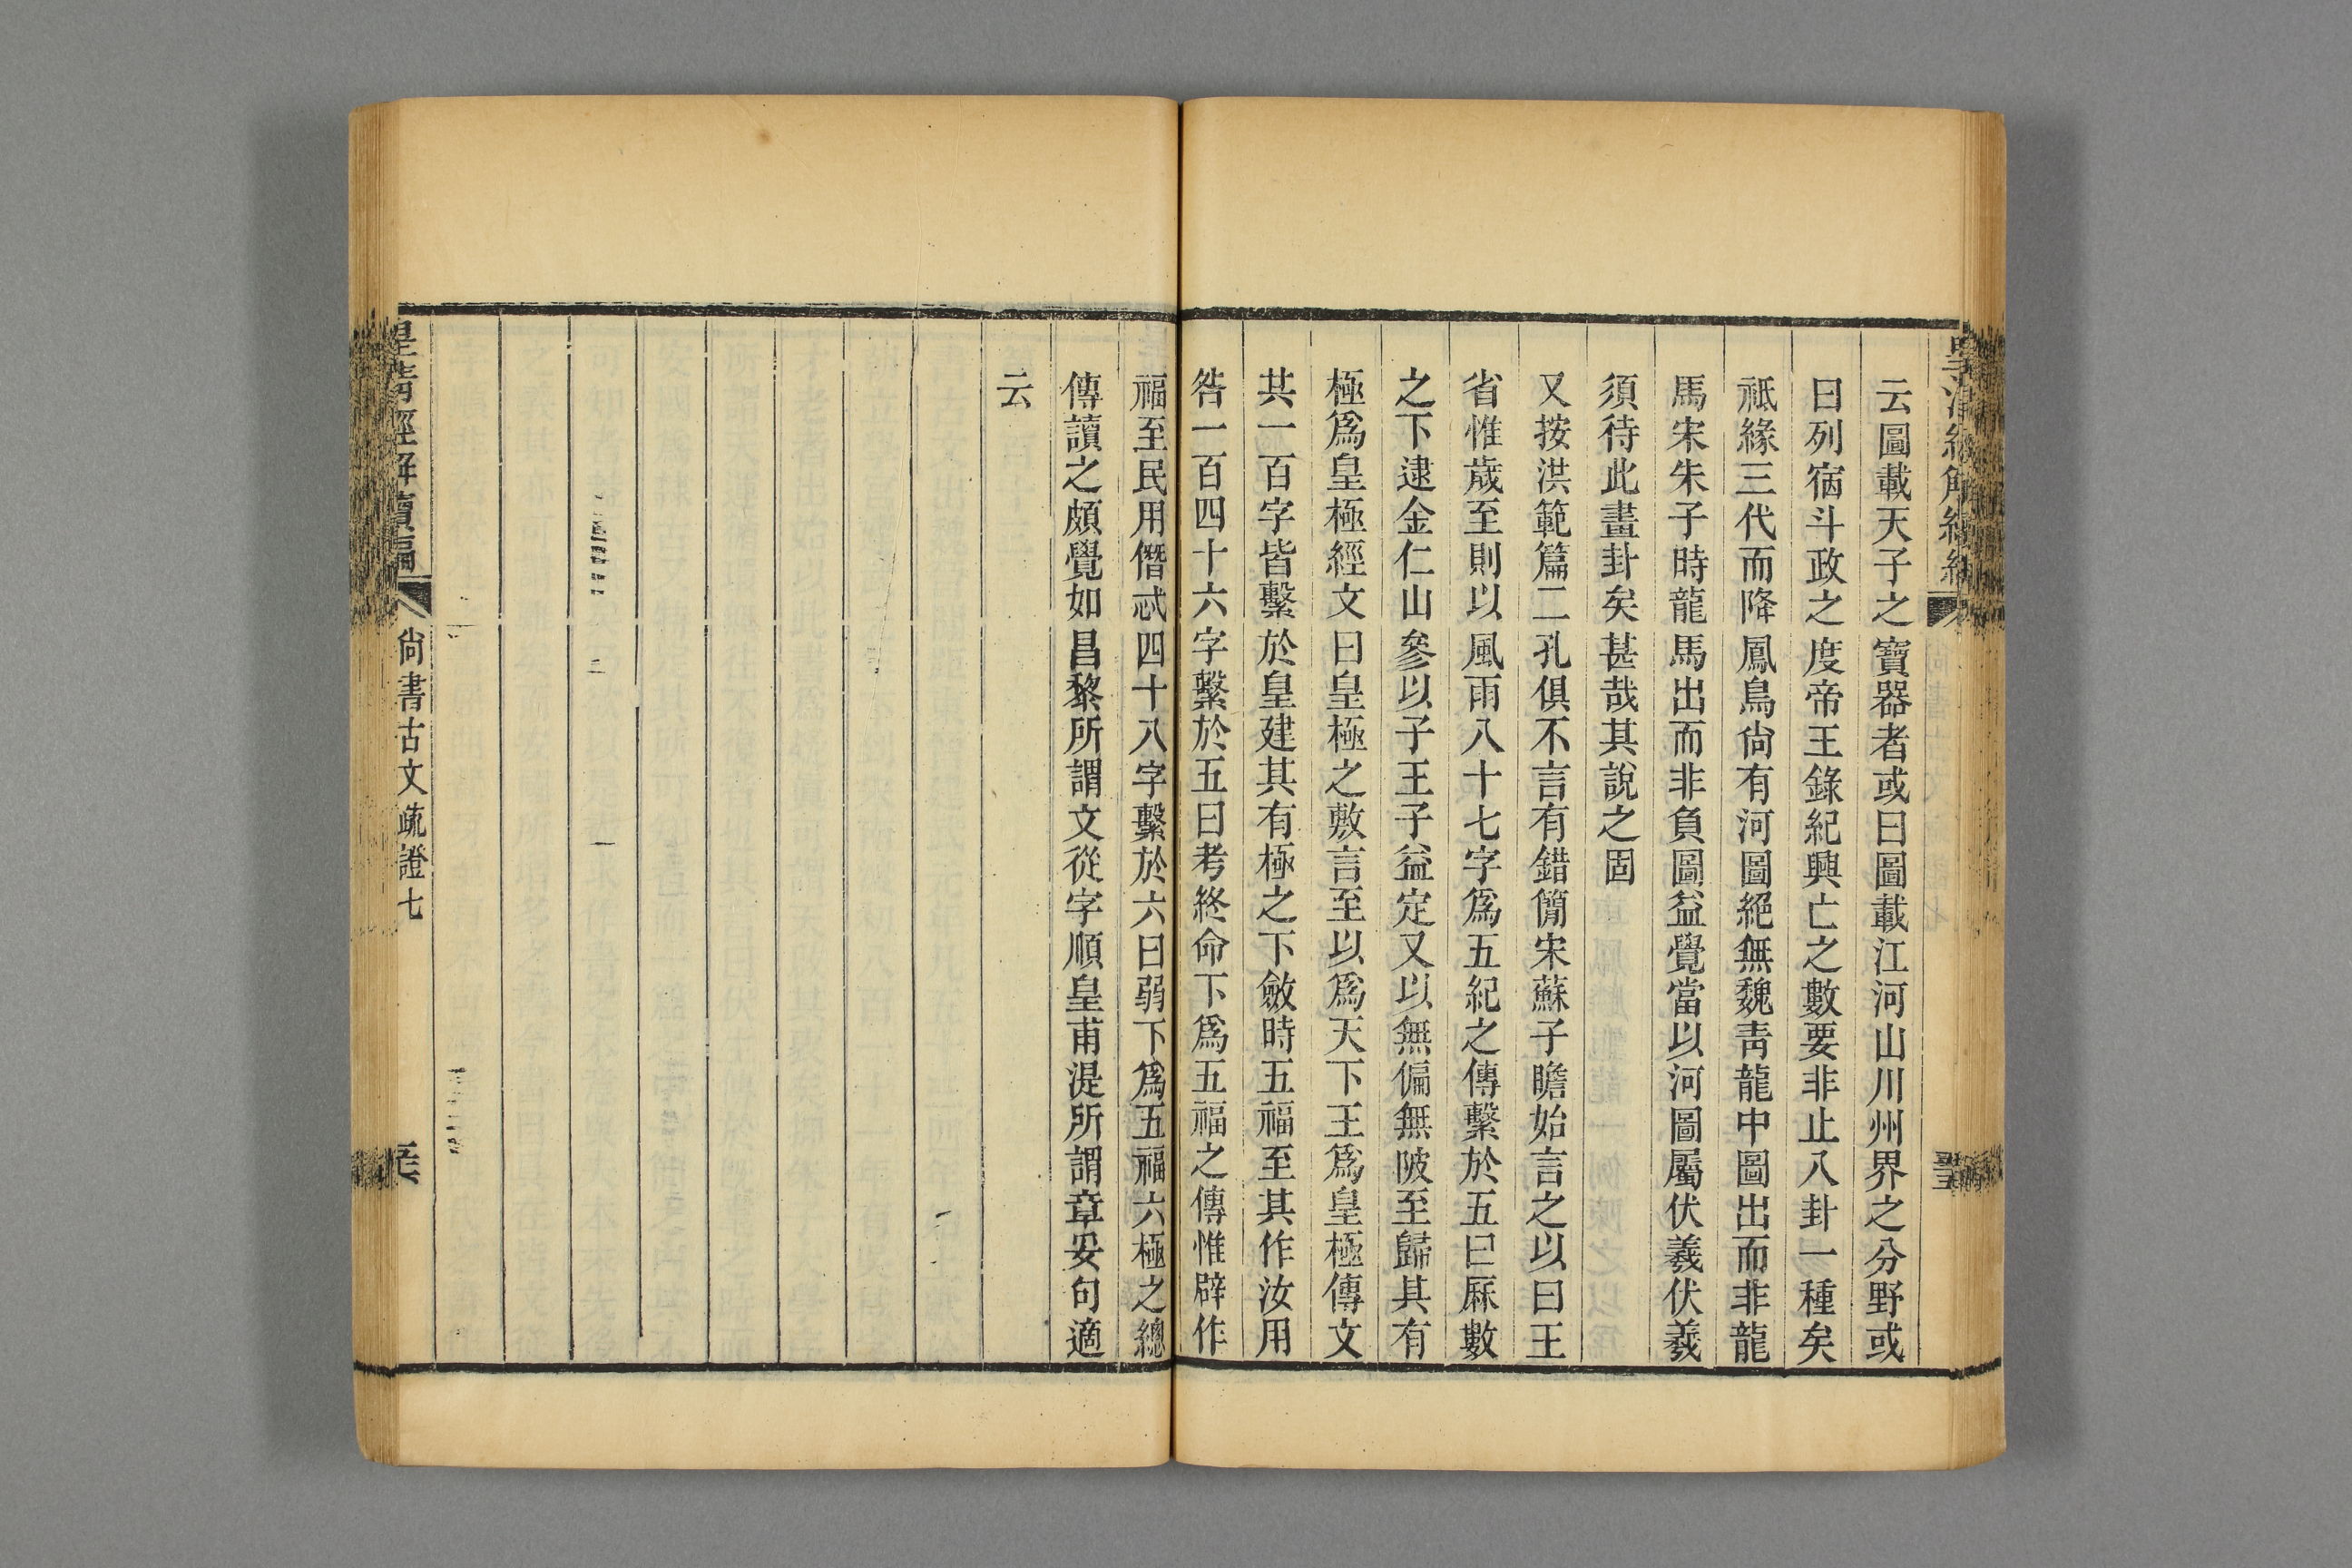 云圖載天子之寶器者或曰圖載江河山川州界之分野或
曰列宿斗政之度帝王錄紀興亡之數要非止八卦一種矣
祗緣三代而降鳳鳥尙有河圖絕無魏靑龍中圖出而非龍
馬宋朱子時龍馬出而非負圖益覺當以河圖屬伏羲伏羲
須待此畫卦矣甚哉其說之固
又按洪範篇二孔俱不言有錯簡宋蘇子瞻始言之以曰王
省惟歲至則以風雨八十七字爲五紀之傳繫於五曰厤數
之下逮金仁山參以子王子益定又以無偏無陂至歸其有
極爲皇極經文曰皇極之敷言至以爲天下王爲皇極傳文
其一百字皆繫於皇建其有極之下斂時五福至其作汝用
咎一百四十六字繫於五曰考終命下爲五福之傳惟辟作
福至民用僭忒四十八字繫於六曰弱下爲五福六極之總
傳讀之頗覺如昌黎所謂文從字順皇甫湜所謂章妥句適
云
皇淸經解續編
尙書古文疏證七